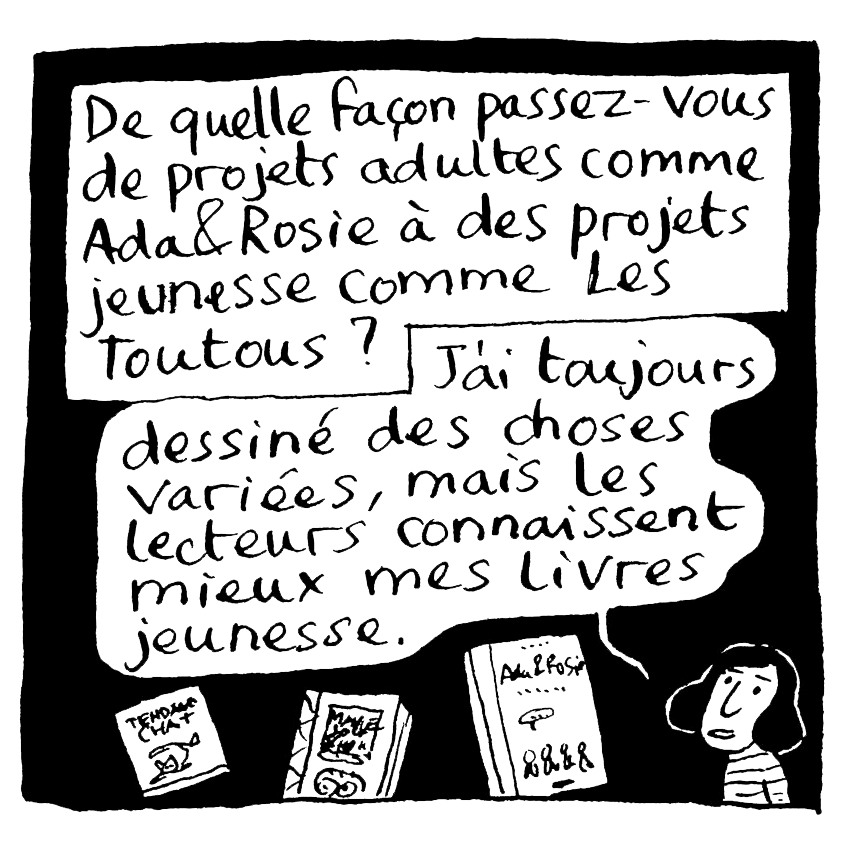 De quelle façon passez-vous
de projets adultes comme
Ada&Rosie à des projets
jeunesse comme Les
Toutous ?
J'ai toujours
dessiné des choses
variées, mais les
lecteurs connaissent
mieux mes livres
jeunesse.
CHAT
Ada&Rosie